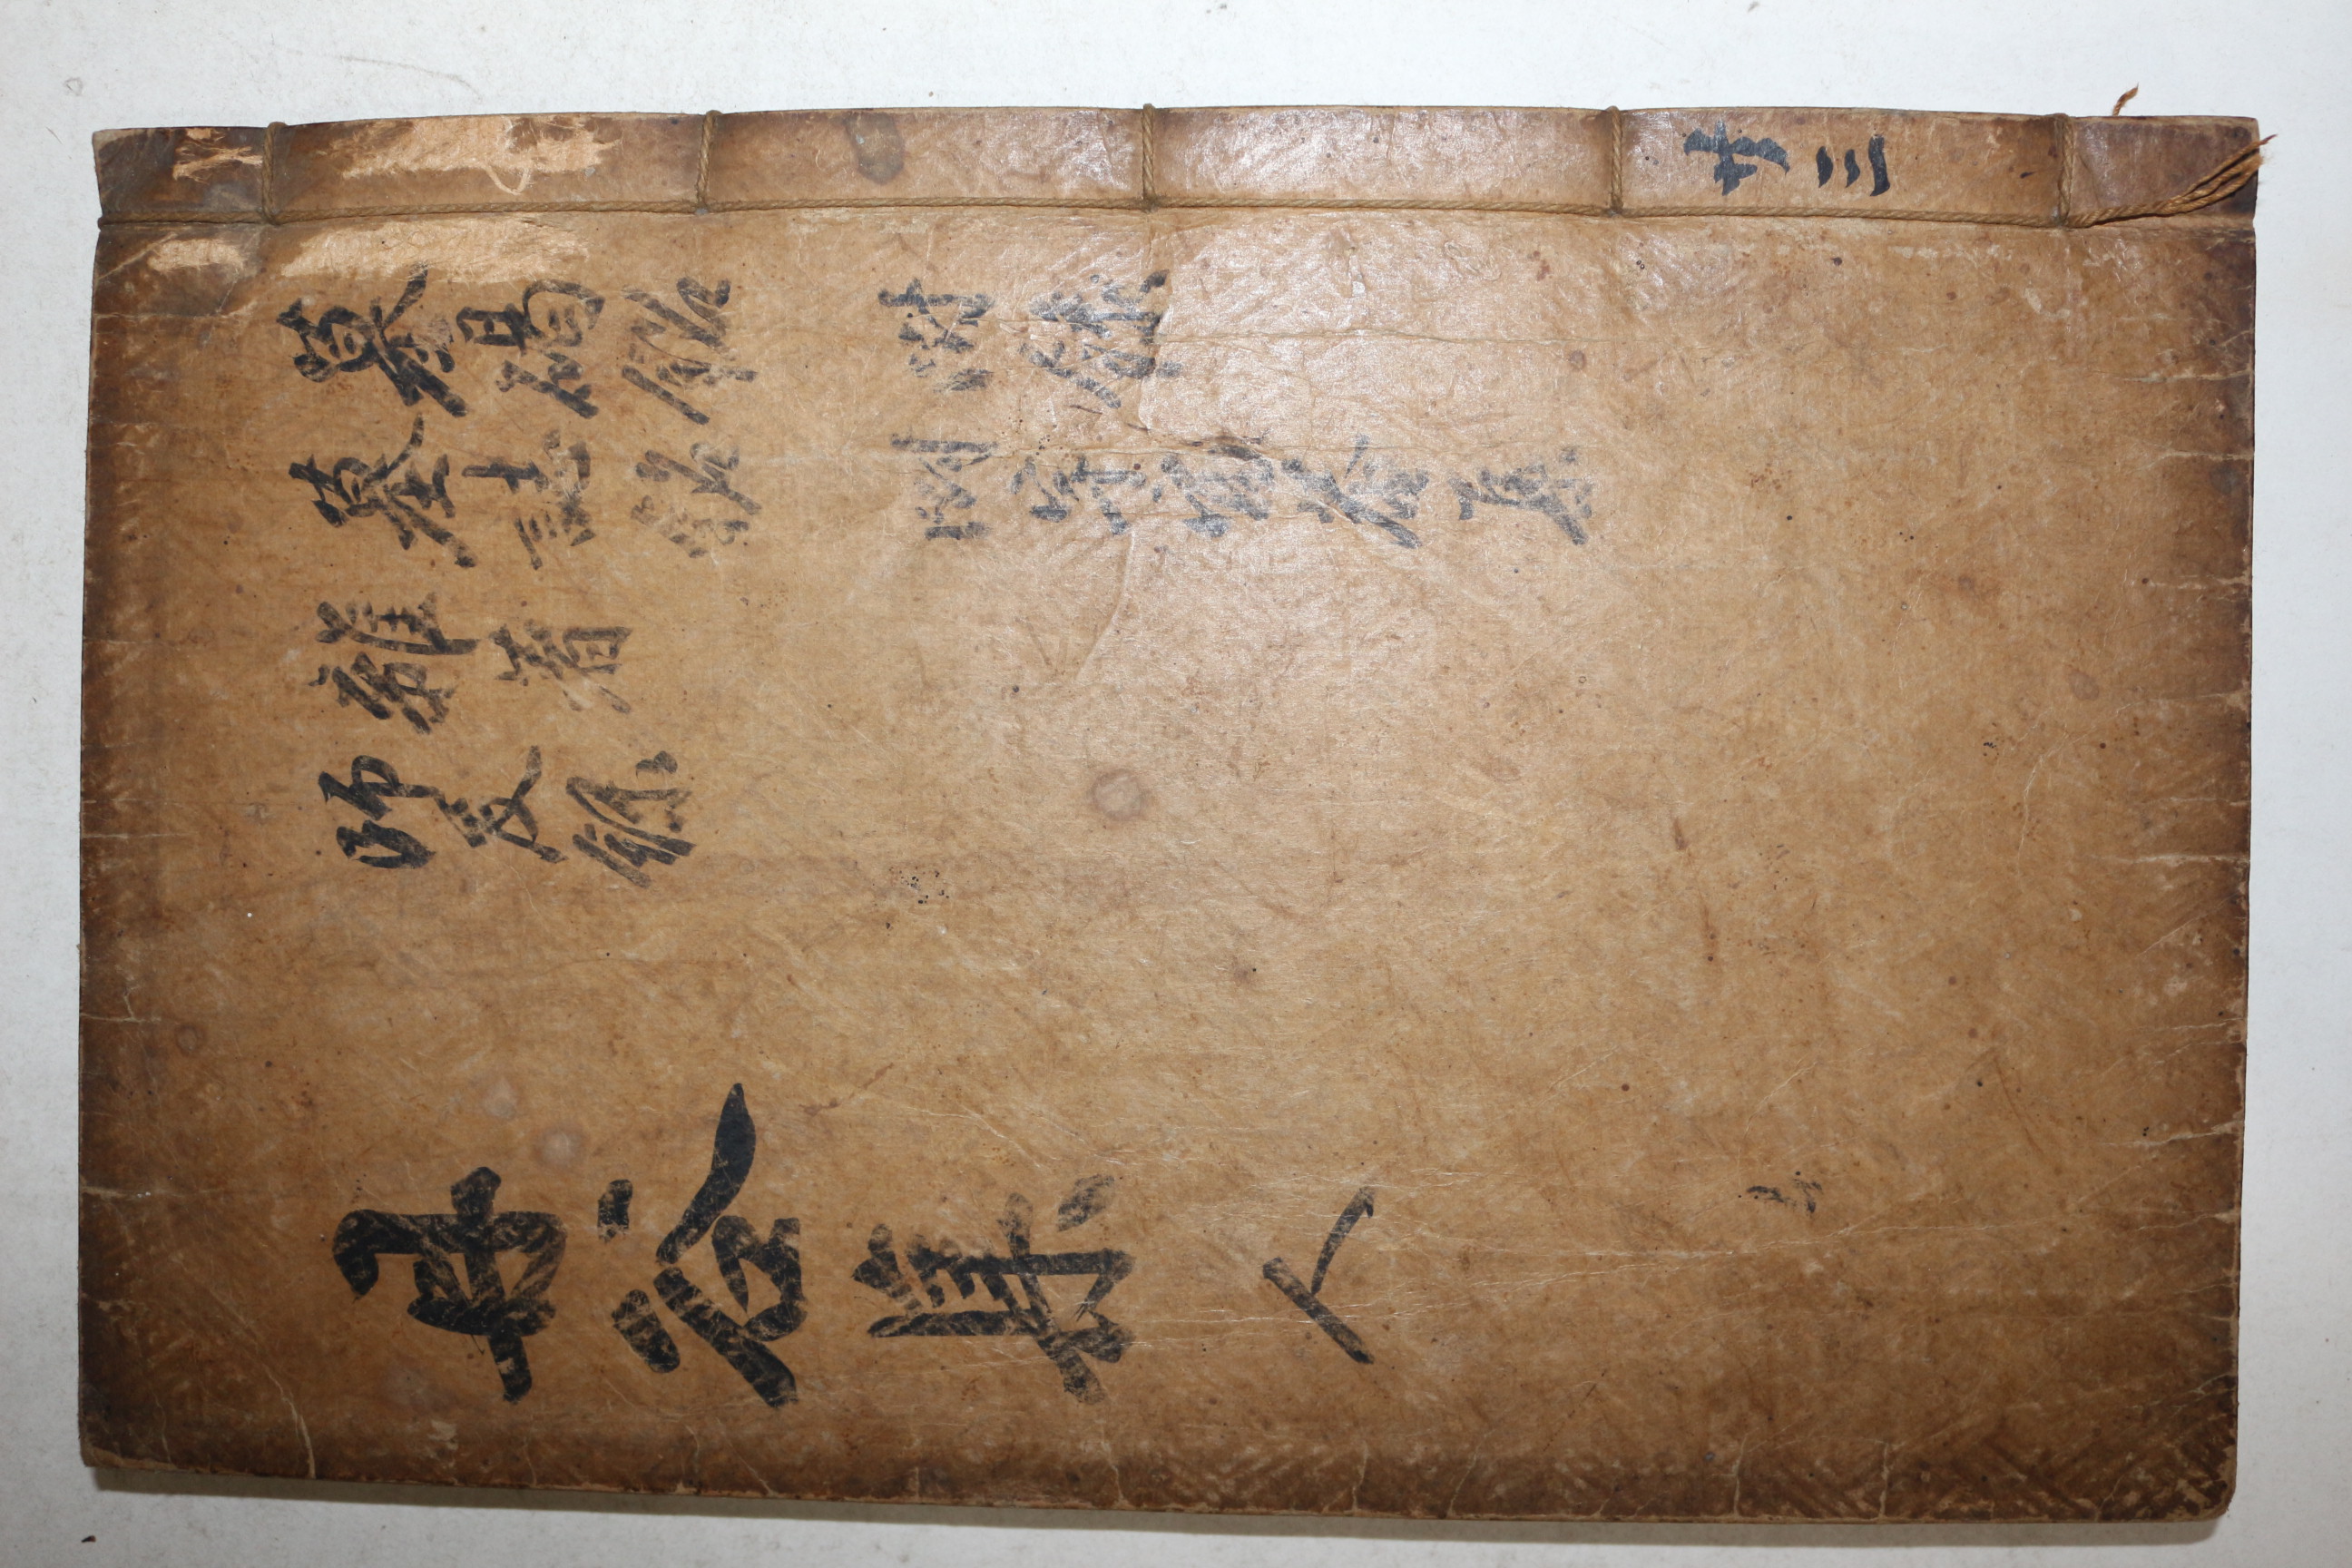 墓碣銘 附錄
墓誌銘 附 集
雜著
師友錄
丹谷集 人
共三